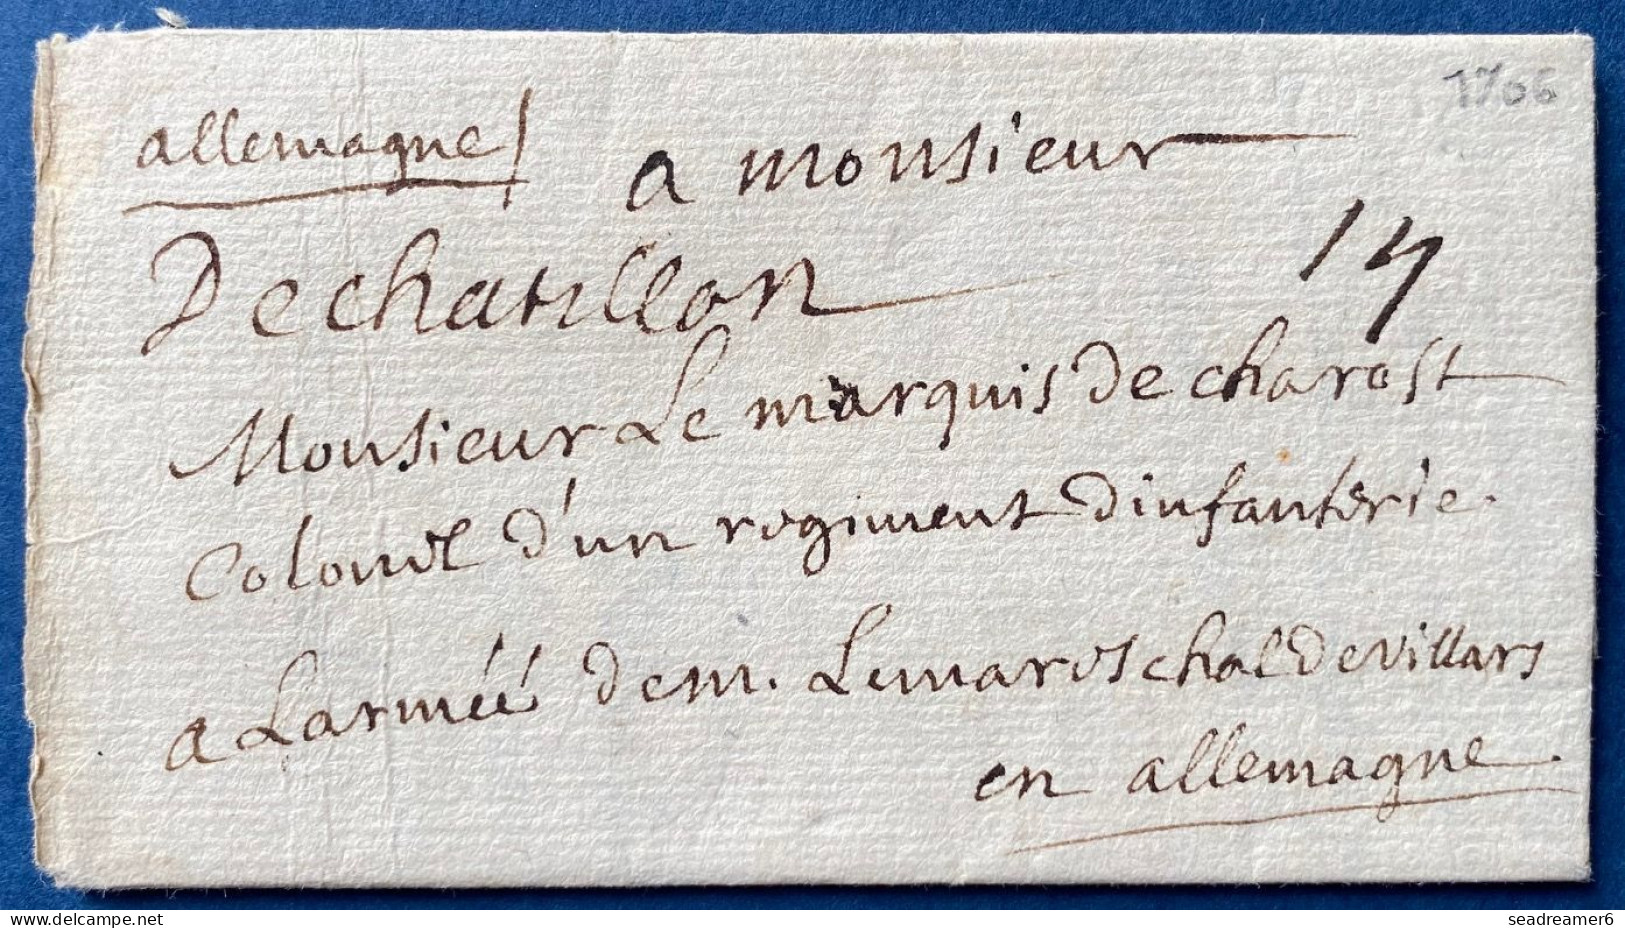 1706
allemagne/
a monsieur
De chatillon
14
Monsieur Le marquis de charost
Colonel d'un regiment dinfanterie.
a Larméé de m. Lemareschal de villars
en allemagne.
delcampe.net
seadreamer6